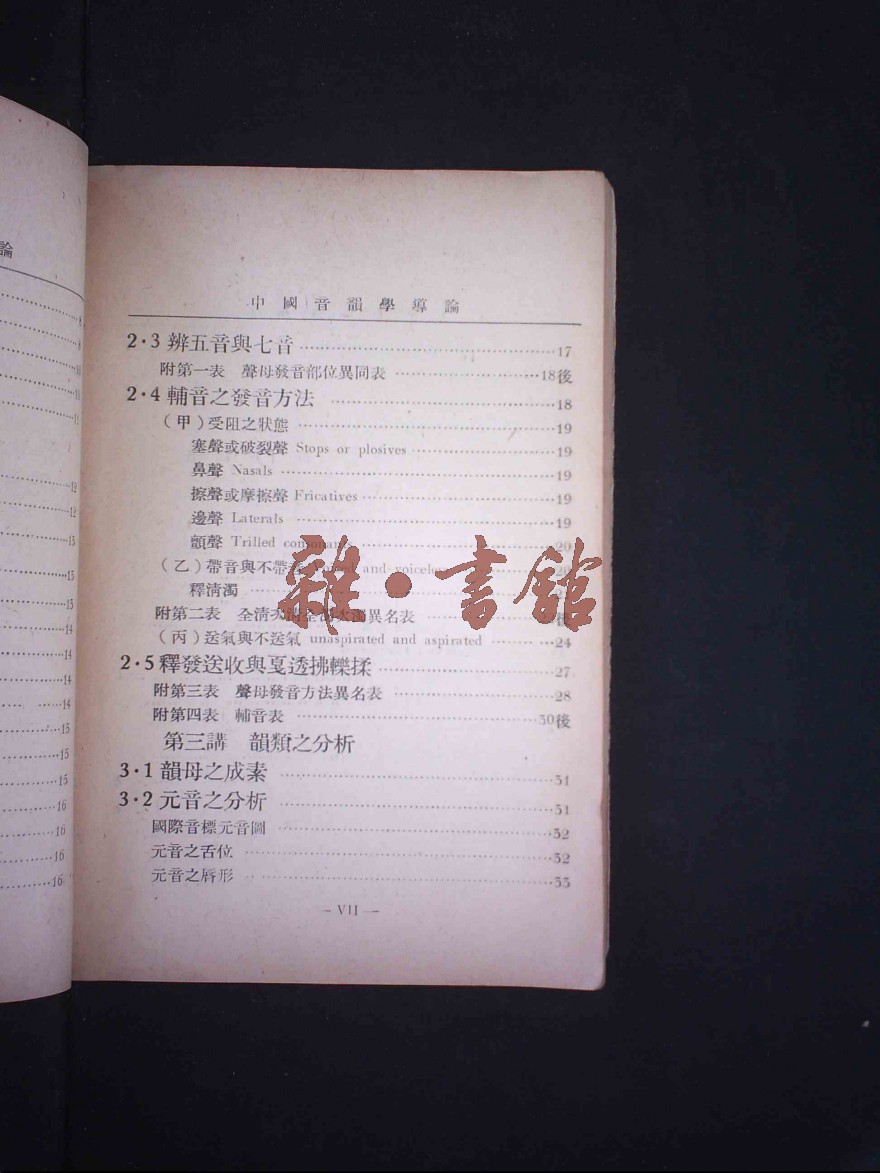 論
8
9
10
10
11
12
12
13
13
15
14
14
14
15
15
15
16
16
16
中國音韻學導論
2·3 辨五音與七音 17
附第一表 聲母發音部位異同表 18後
2·4 輔音之發音方法 18
（甲）受阻之狀態 19
塞聲或破裂聲 Stops or plosives 19
鼻聲 Nasals 19
擦聲或摩擦聲 Fricatives 19
邊聲 Laterals 19
顫聲 Trilled consonants 20
（乙）帶音與不帶音 Voiced and voiceless 20
釋清濁
附第二表 全清次清全濁次濁異名表 後
（丙）送氣與不送氣 unaspirated and aspirated 24
2·5 釋發送收與戛透拂轢揉 27
附第三表 聲母發音方法異名表 28
附第四表 輔音表 30後
第三講 韻類之分析
3·1 韻母之成素 31
3·2 元音之分析 31
國際音標元音圖 32
元音之舌位 32
元音之唇形 33
— VII —
雜·書館